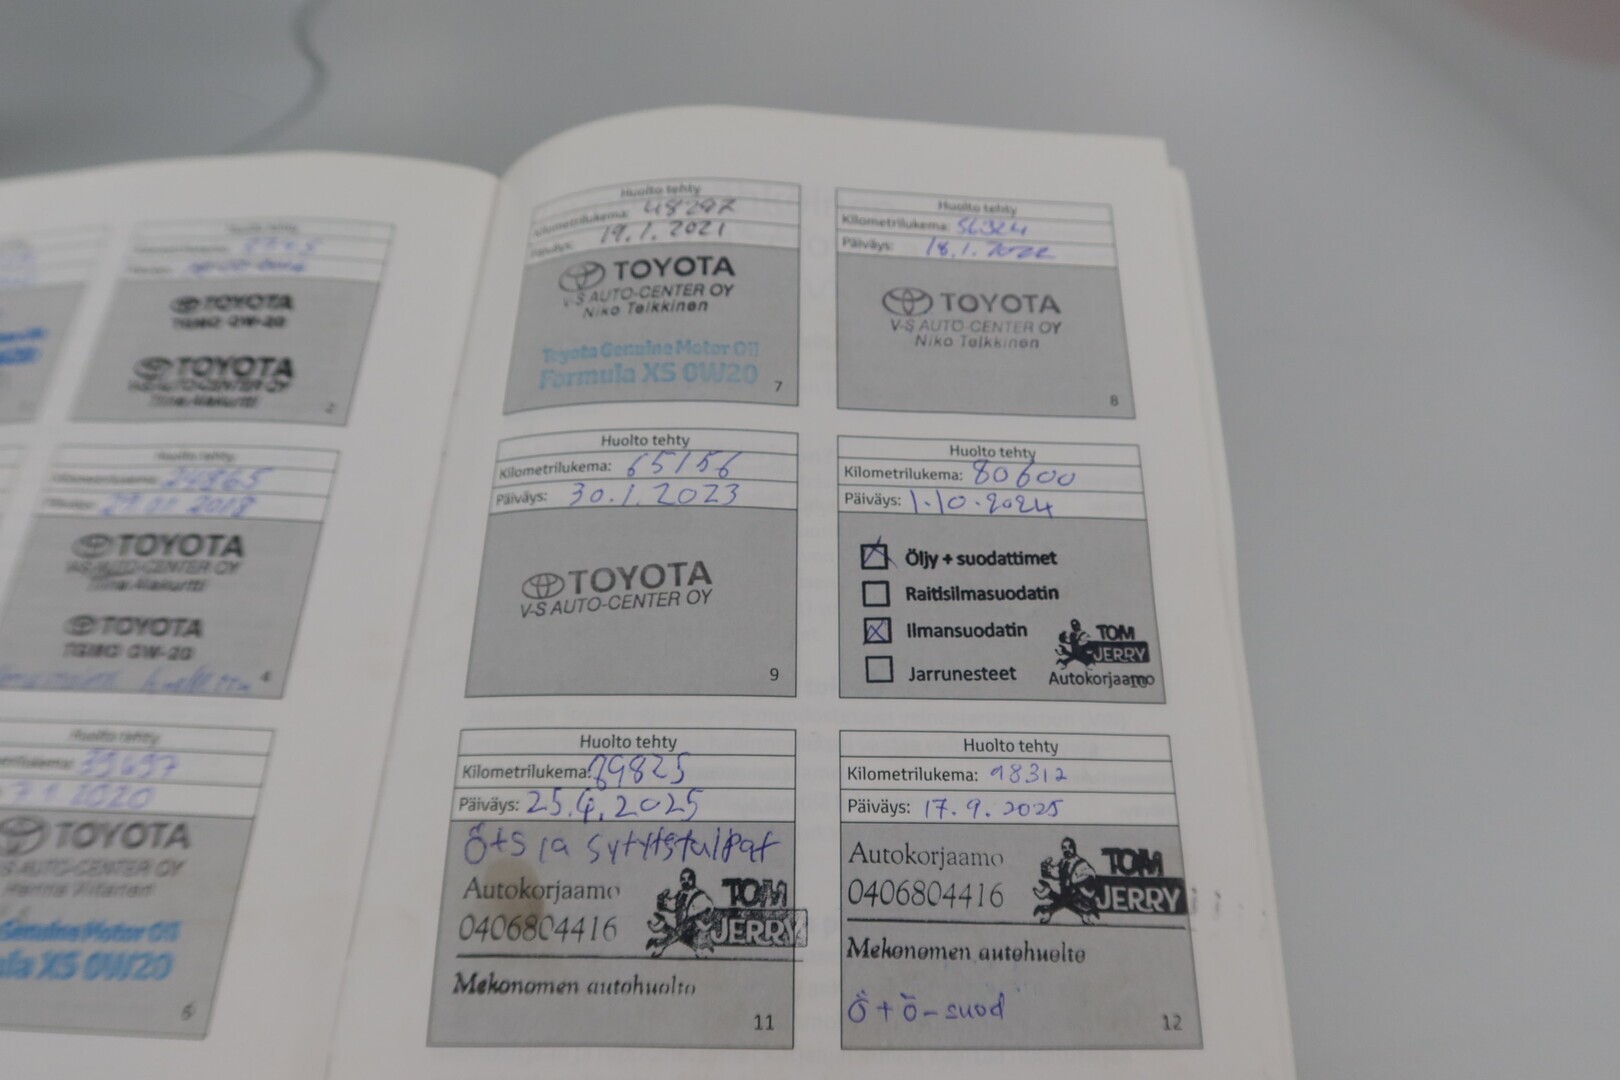 TOYOTA
TOYOTA
Huolto tehty
24865
TOYOTA
TOYOTA
TGMO 0W-20
4
Huolto tehty
39697
2020
TOYOTA
V-S AUTO-CENTER OY
Genuine Motor Oil
XS 0W20
6
Huolto tehty
Kilometrilukema: 48297
Päiväys: 19.1.2021
TOYOTA
V-S AUTO-CENTER OY
Niko Telkkinen
Toyota Genuine Motor Oil
Formula XS 0W20
7
Huolto tehty
Kilometrilukema: 56324
Päiväys: 18.1.2022
TOYOTA
V-S AUTO-CENTER OY
Niko Telkkinen
8
Huolto tehty
Kilometrilukema: 65156
Päiväys: 30.1.2023
TOYOTA
V-S AUTO-CENTER OY
9
Huolto tehty
Kilometrilukema: 80600
Päiväys: 1.10.2024
Öljy + suodattimet
Raitisilmasuodatin
Ilmansuodatin
Jarrunesteet
TOM
JERRY
Autokorjaamo
10
Huolto tehty
Kilometrilukema: 89825
Päiväys: 25.4.2025
Ö+S ja sytytstulpat
Autokorjaamo
0406804416
TOM
JERRY
Mekonomen autohuolto
11
Huolto tehty
Kilometrilukema: 98312
Päiväys: 17.9.2025
Autokorjaamo
0406804416
TOM
JERRY
Mekonomen autohuolto
Ö + Ö-suod
12